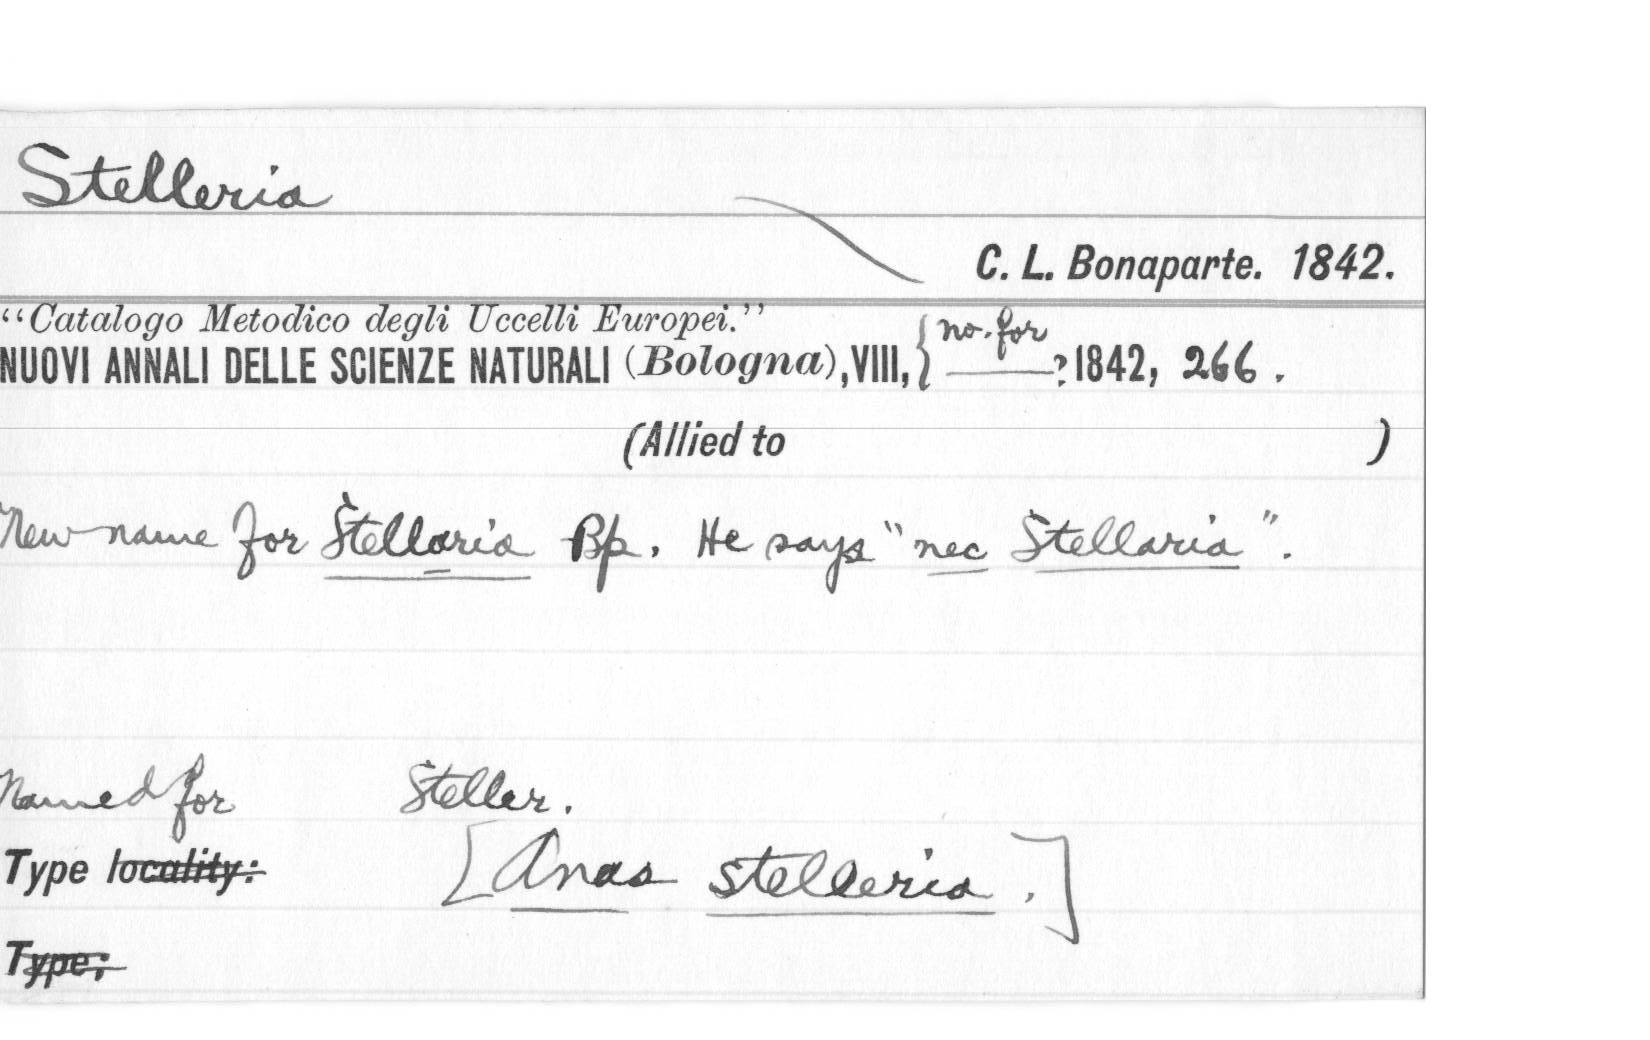 Stelleria
C. L. Bonaparte. 1842.
“Catalogo Metodico degli Uccelli Europei.”
no. for
NUOVI ANNALI DELLE SCIENZE NATURALI (Bologna), VIII, { ——? 1842, 266.
(Allied to )
New name for Stellaria Bp. He says “nec Stellaria”.
Named for Steller.
Type locality: [Anas stelleria.]
Type: